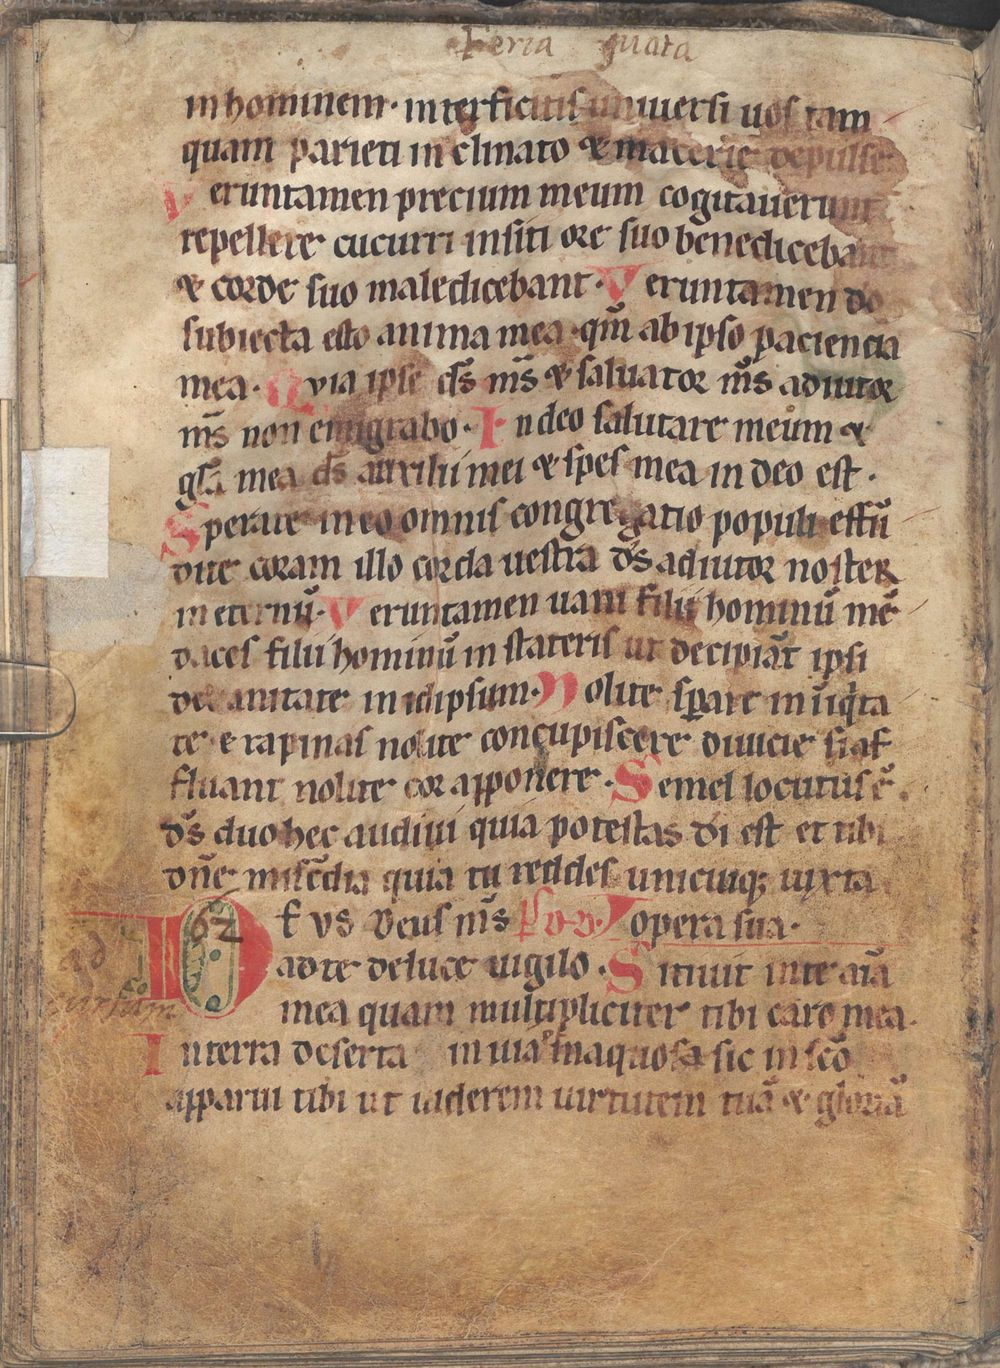 feria quata
in hominem· interficitis universi uos tam
quam parieti in clinato & macerie depulse
Veruntamen precium meum cogitauerunt
repellere cucurri in siti ore suo benedicebant
& corde suo maledicebant· Veruntamen do
subiecta esto anima mea· qm̄ ab ipso paciencia
mea· Quia ipse ds̄ ms̄ & saluator ms̄ adiutor
ms̄ non emigrabo· In deo salutare meum &
gl̄a mea ds̄ auxilii mei & spes mea in deo est·
Sperate in eo omnis congregatio populi effū
dite coram illo corda uestra ds̄ adiutor noster
in eternū· Veruntamen uani filii hominū mē
daces filii hominū in stateris ut decipiāt ipsi
de uanitate in idipsum· Nolite sꝑare in iiq̇ta
te & rapinas nolite concupiscere diuicie si af
fluant nolite cor apponere· Semel locutus ē·
ds̄ duo hec audiui quia potestas di est et tibi
dn̄e misc̄dia quia tu reddes unicuiqꝫ iuxta
opera sua·
62
DEVS Deus ms̄
ad te de luce uigilo· Sitiuit in te aīa
mea quam multipliciter tibi caro mea·
In terra deserta in uia & inaquosa sic in sc̄o
apparui tibi ut uiderem uirtutem tuā & gloriā
ad
cursum